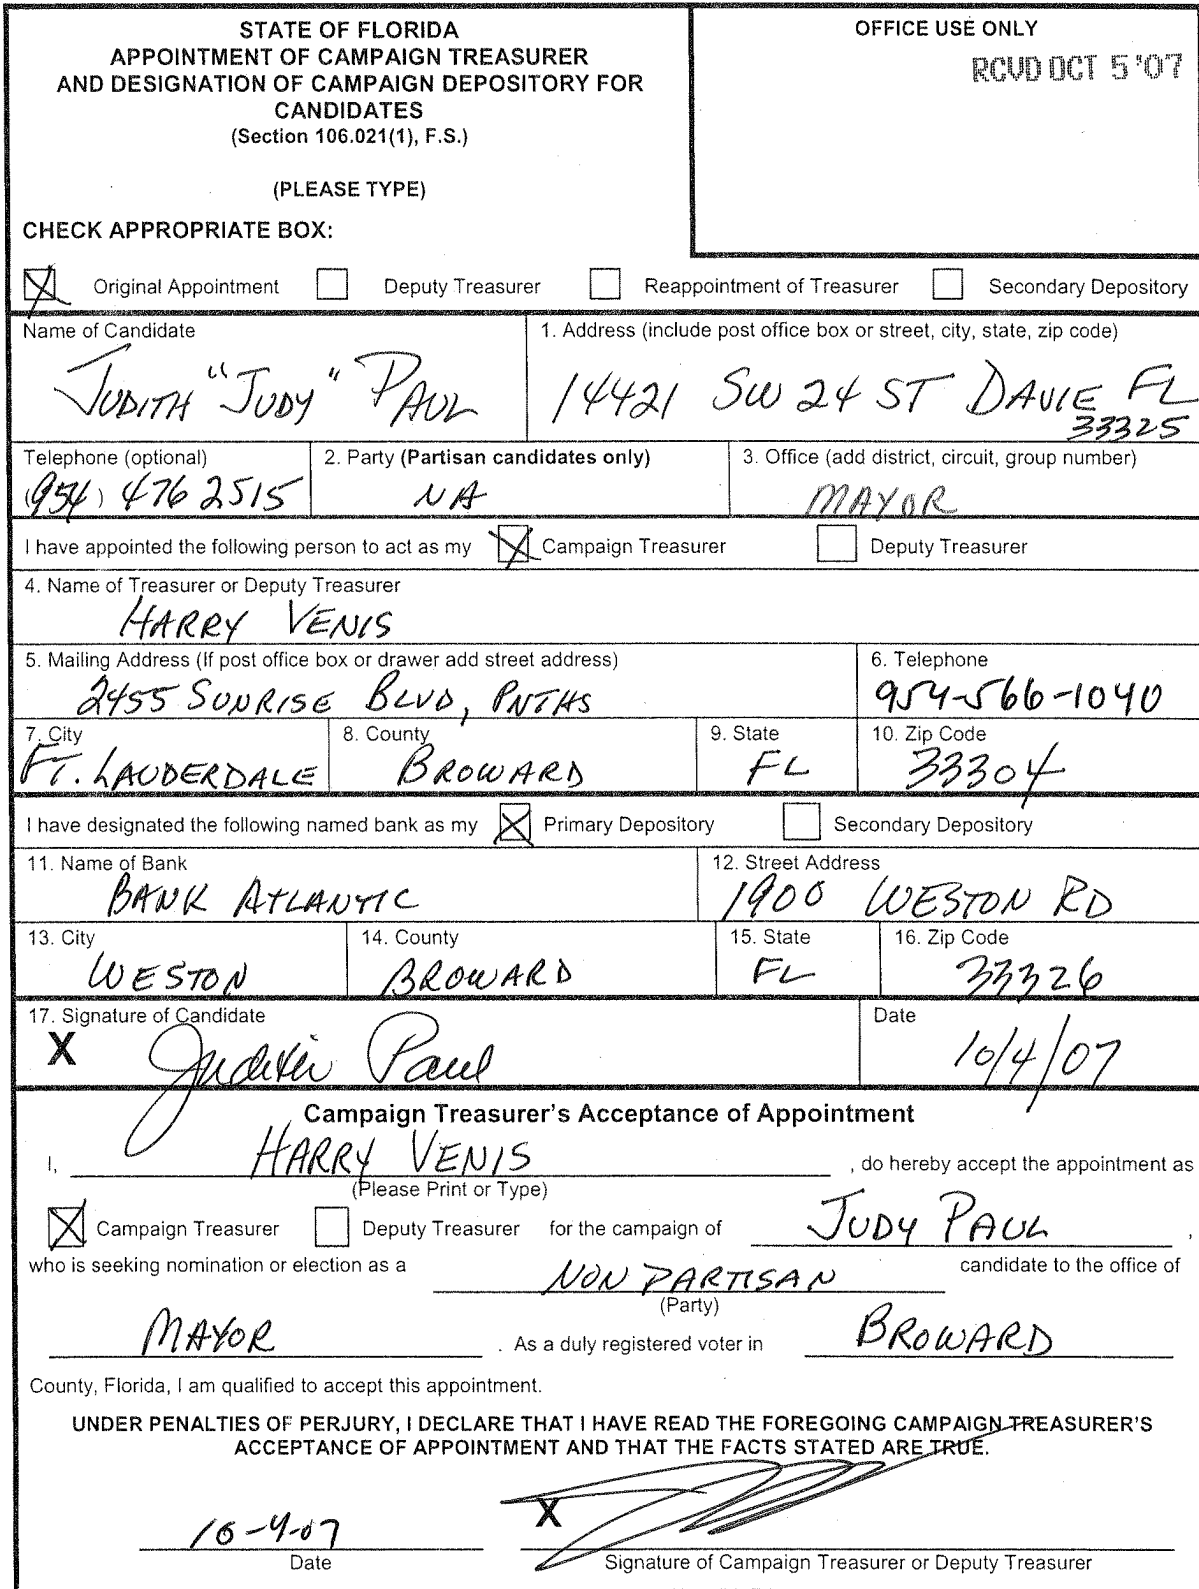 STATE OF FLORIDA
APPOINTMENT OF CAMPAIGN TREASURER
AND DESIGNATION OF CAMPAIGN DEPOSITORY FOR
CANDIDATES
(Section 106.021(1), F.S.)
(PLEASE TYPE)
CHECK APPROPRIATE BOX:
OFFICE USE ONLY
RCVD OCT 5 '07
Original Appointment Deputy Treasurer Reappointment of Treasurer Secondary Depository
Name of Candidate
JUDITH "JUDY" PAUL
1. Address (include post office box or street, city, state, zip code)
14421 SW 24 ST DAVIE FL
33325
Telephone (optional)
(954) 476 2515
2. Party (Partisan candidates only)
NA
3. Office (add district, circuit, group number)
MAYOR
I have appointed the following person to act as my Campaign Treasurer Deputy Treasurer
4. Name of Treasurer or Deputy Treasurer
HARRY VENIS
5. Mailing Address (If post office box or drawer add street address)
2455 SUNRISE BLVD, PNTHS
6. Telephone
954-566-1040
7. City
FT. LAUDERDALE
8. County
BROWARD
9. State
FL
10. Zip Code
33304
I have designated the following named bank as my Primary Depository Secondary Depository
11. Name of Bank
BANK ATLANTIC
12. Street Address
1900 WESTON RD
13. City
WESTON
14. County
BROWARD
15. State
FL
16. Zip Code
33326
17. Signature of Candidate
X Judith Paul
Date
10/4/07
Campaign Treasurer's Acceptance of Appointment
I, HARRY VENIS , do hereby accept the appointment as
(Please Print or Type)
Campaign Treasurer Deputy Treasurer for the campaign of JUDY PAUL ,
who is seeking nomination or election as a NON PARTISAN candidate to the office of
(Party)
MAYOR . As a duly registered voter in BROWARD
County, Florida, I am qualified to accept this appointment.
UNDER PENALTIES OF PERJURY, I DECLARE THAT I HAVE READ THE FOREGOING CAMPAIGN TREASURER'S
ACCEPTANCE OF APPOINTMENT AND THAT THE FACTS STATED ARE TRUE.
10-4-07 X
Date Signature of Campaign Treasurer or Deputy Treasurer